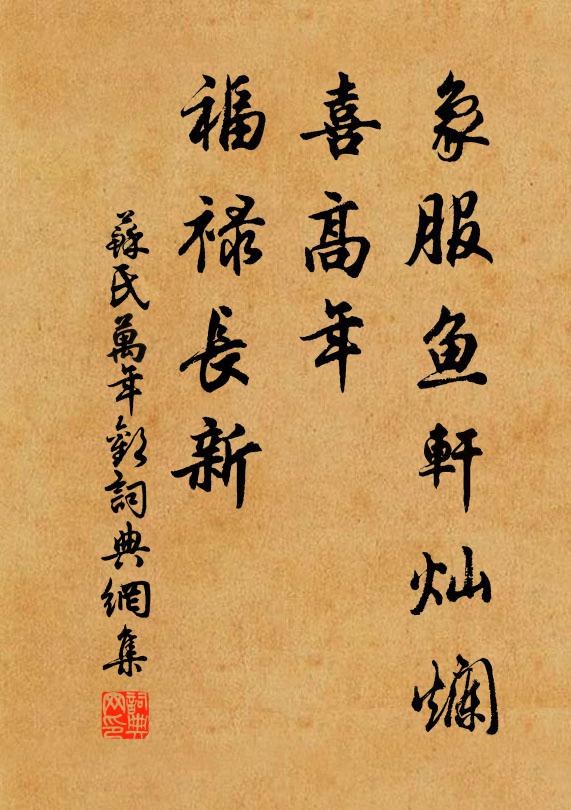 象服鱼軒灿爛
喜高年
福禄長新
蘇氏萬年歡詞典網集
詞典网印